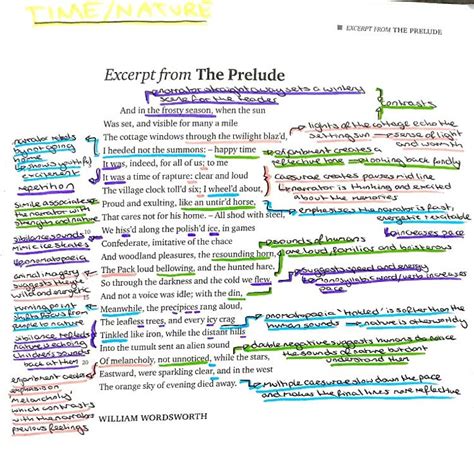 TIME/NATURE
EXCERPT FROM THE PRELUDE
Excerpt from The Prelude
narrator straight away sets a winter
scene for the reader
And in the frosty season, when the sun
Was set, and visible for many a mile
The cottage windows through the twilight blaz'd,
I heeded not the summons: – happy time
It was, indeed, for all of us; to me
It was a time of rapture: clear and loud
The village clock toll'd six; I wheel'd about,
Proud and exulting, like an untir'd horse,
That cares not for his home. – All shod with steel,
We hiss'd along the polish'd ice, in games
Confederate, imitative of the chace
And woodland pleasures, the resounding horn,
The Pack loud bellowing, and the hunted hare.
So through the darkness and the cold we flew,
And not a voice was idle; with the din,
15
Meanwhile, the precipices rang aloud,
The leafless trees, and every icy crag
Tinkled like iron, while the distant hills
Into the tumult sent an alien sound
Of melancholy, not unnoticed, while the stars,
Eastward, were sparkling clear, and in the west
The orange sky of evening died away.
WILLIAM WORDSWORTH
narrator rebels
by not going
home
shows youthful
excitement
repetition
simile associates
the narrator with
strength and nature
sibilance sounds
mimic ice skates
onomatopoeia
animal imagery
suggests they're
wild and energetic
turning point
shifts focus from
people to nature
sibilance reflects
nature echoing
children's sounds
back at them
enjambment creates
emphasis on
'melancholy'
which contrasts
with the narrators
previous feelings
contrasts
lights of the cottage echo the
setting sun
sense of light
and warmth
enjambment creates a
reflective tone
looking back fondly
caesurae creates pauses mid line
narrator is thinking and excited
about the memories
emphasises the narrator is fast,
energetic + excitable
increases pace
sounds of humans
are loud, familiar and boisterous
suggests speed and energy
monosyllabic words/verb increases
pace
onomatopoeia 'tinkled' is softer than the
human sounds
nature is otherworldly
double negative suggests humans do notice
the sounds of nature but don't
understand them
Multiple caesurae slow down the pace
and makes the final lines more reflective